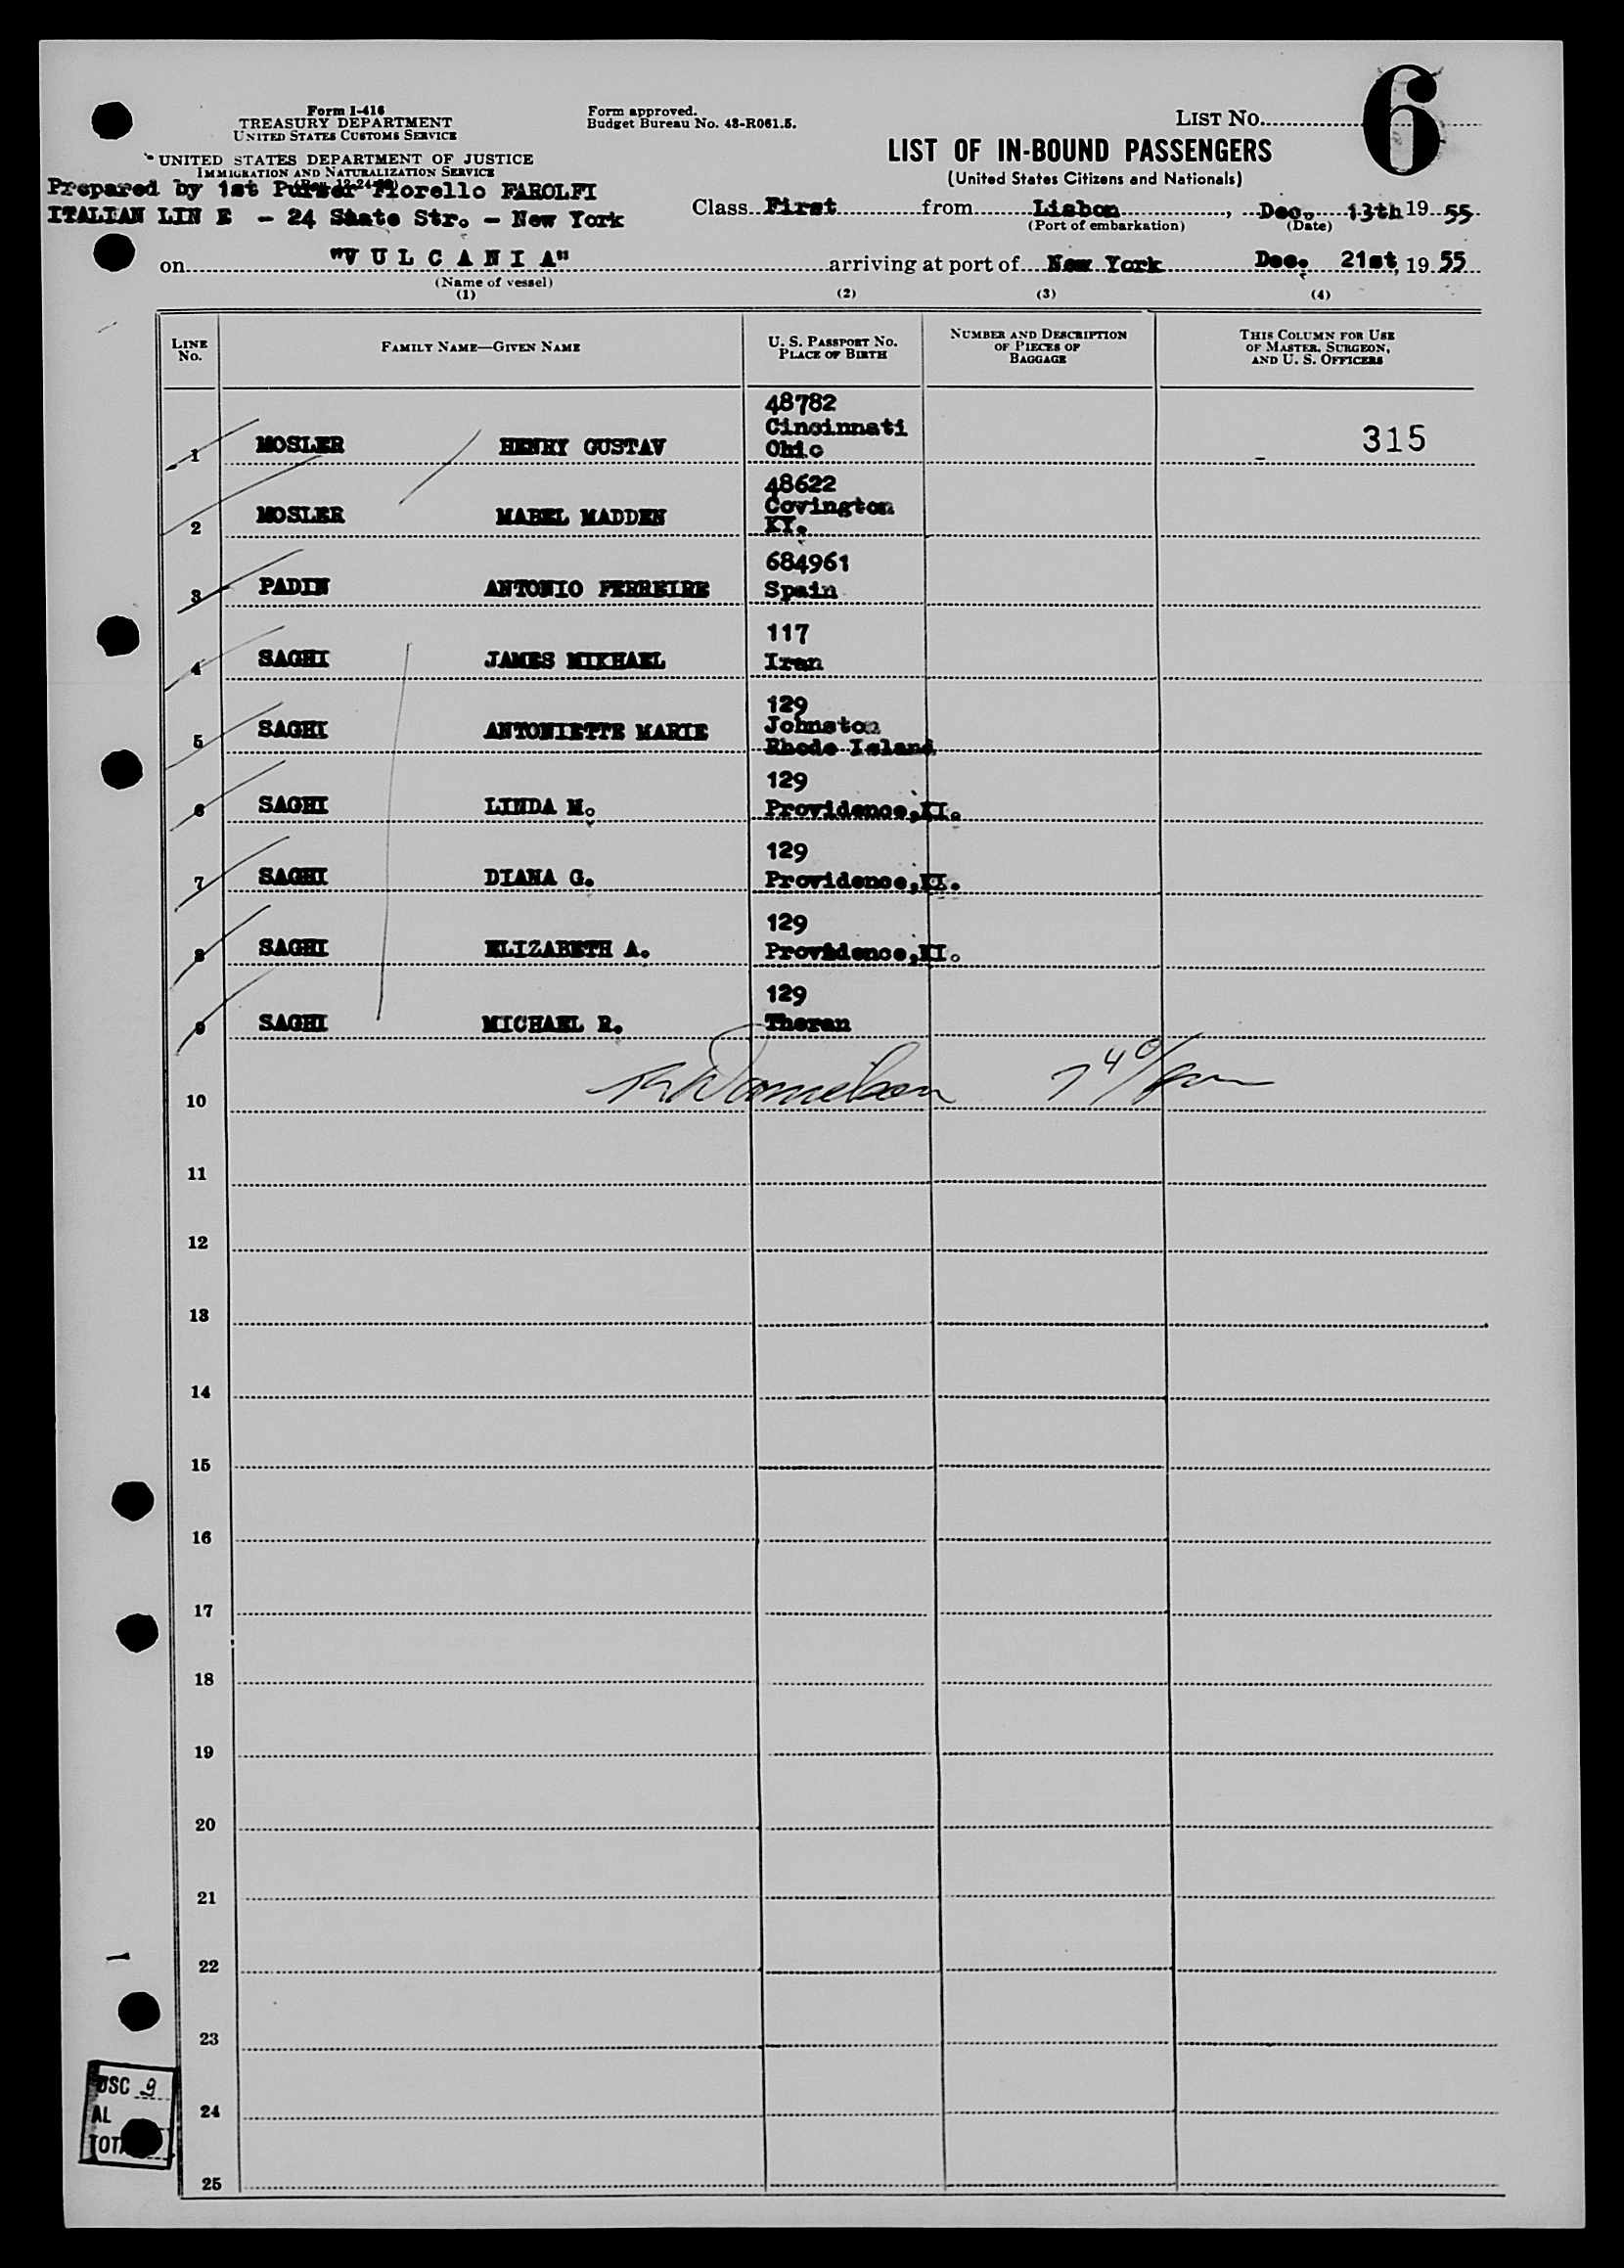 Form I-416
TREASURY DEPARTMENT
UNITED STATES CUSTOMS SERVICE
UNITED STATES DEPARTMENT OF JUSTICE
IMMIGRATION AND NATURALIZATION SERVICE
Form approved.
Budget Bureau No. 43-R061.5.
LIST No. 6
LIST OF IN-BOUND PASSENGERS
(United States Citizens and Nationals)
Prepared by 1st Purser Fiorello FAROLFI
ITALIAN LIN E - 24 Staate Str. - New York
Class First from Lisbon, Dec. 13th 19 55
(Port of embarkation) (Date)
on "V U L C A N I A" arriving at port of New York Dec. 21st, 19 55
(Name of vessel)
(1) (2) (3) (4)
LINE No. FAMILY NAME—GIVEN NAME U. S. PASSPORT NO. PLACE OF BIRTH NUMBER AND DESCRIPTION OF PIECES OF BAGGAGE THIS COLUMN FOR USE OF MASTER, SURGEON, AND U. S. OFFICERS
48782
Cincinnati
1 MOSLER HENRY GUSTAV Ohio 315
48622
Covington
2 MOSLER MABEL MADDEN KY.
684961
3 PADIN ANTONIO FERREIRE Spain
117
4 SAGHI JAMES MIKHAEL Iran
129
Johnston
5 SAGHI ANTONIETTE MARIE Rhode Island
129
6 SAGHI LINDA M. Providence,
129
7 SAGHI DIANA G. Providence,
129
8 SAGHI ELIZABETH A. Providence,
129
9 SAGHI MICHAEL R. Theran
10
11
12
13
14
15
16
17
18
19
20
21
22
23
24
25
USC 9
AL